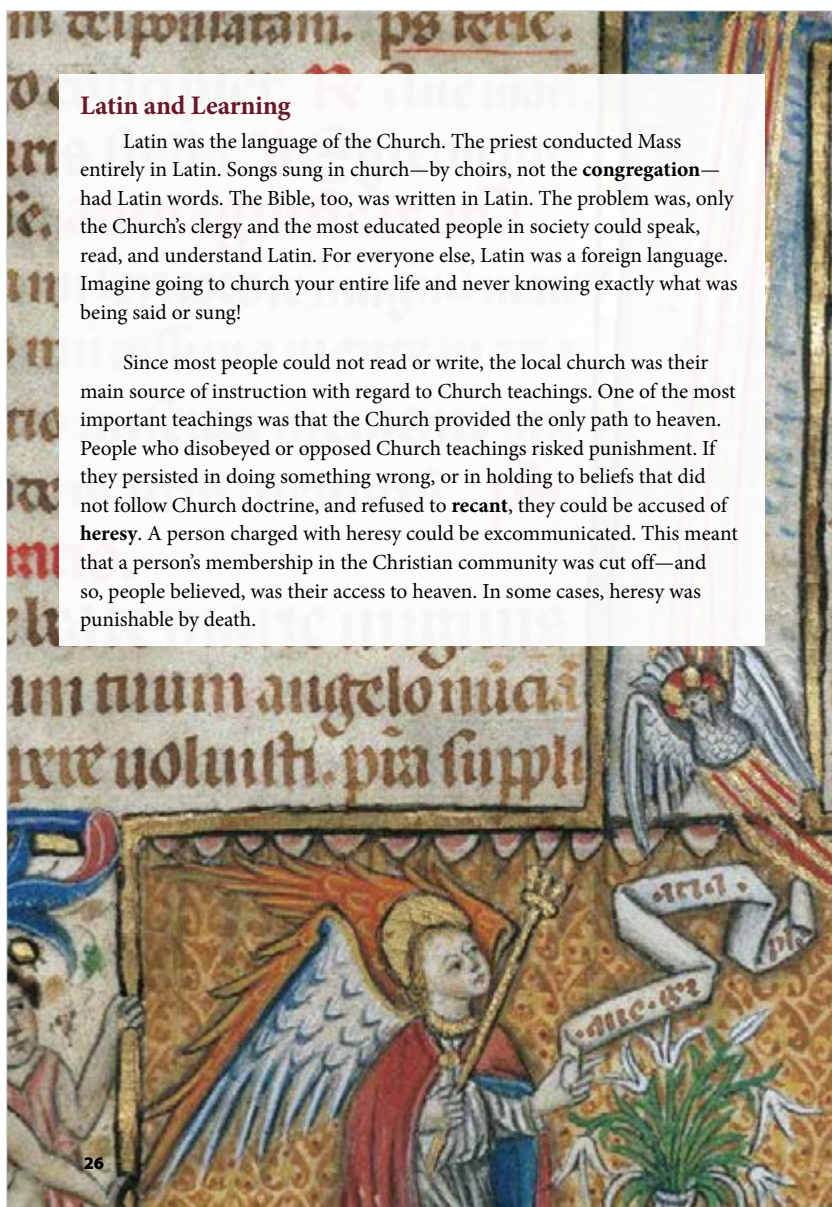 Latin and Learning
Latin was the language of the Church. The priest conducted Mass
entirely in Latin. Songs sung in church—by choirs, not the congregation—
had Latin words. The Bible, too, was written in Latin. The problem was, only
the Church’s clergy and the most educated people in society could speak,
read, and understand Latin. For everyone else, Latin was a foreign language.
Imagine going to church your entire life and never knowing exactly what was
being said or sung!
Since most people could not read or write, the local church was their
main source of instruction with regard to Church teachings. One of the most
important teachings was that the Church provided the only path to heaven.
People who disobeyed or opposed Church teachings risked punishment. If
they persisted in doing something wrong, or in holding to beliefs that did
not follow Church doctrine, and refused to recant, they could be accused of
heresy. A person charged with heresy could be excommunicated. This meant
that a person’s membership in the Christian community was cut off—and
so, people believed, was their access to heaven. In some cases, heresy was
punishable by death.
um tuum angelo
uoluisti.
26